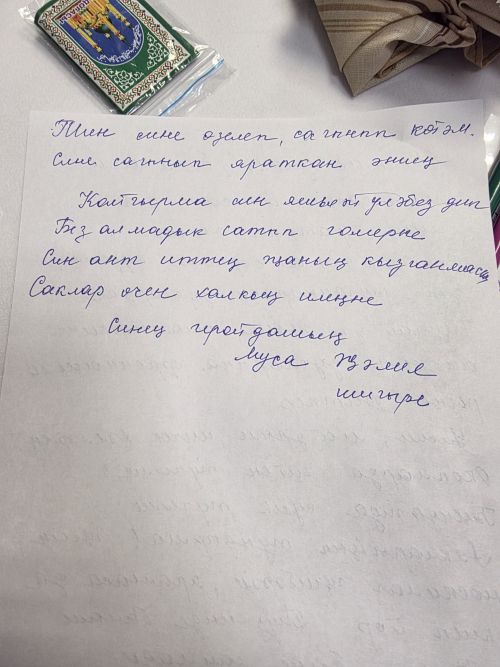 Мин сине өзелеп, сагынып көтәм.
Сине сагынып яраткан әниең
Кайгырма син яшьли үләбез дип
Без алмадык сатып гомерне
Син ант иттең җаның кызганмаска
Саклар өчен халкың илеңне
Синең геройдашың
Муса Җәлил
шигыре